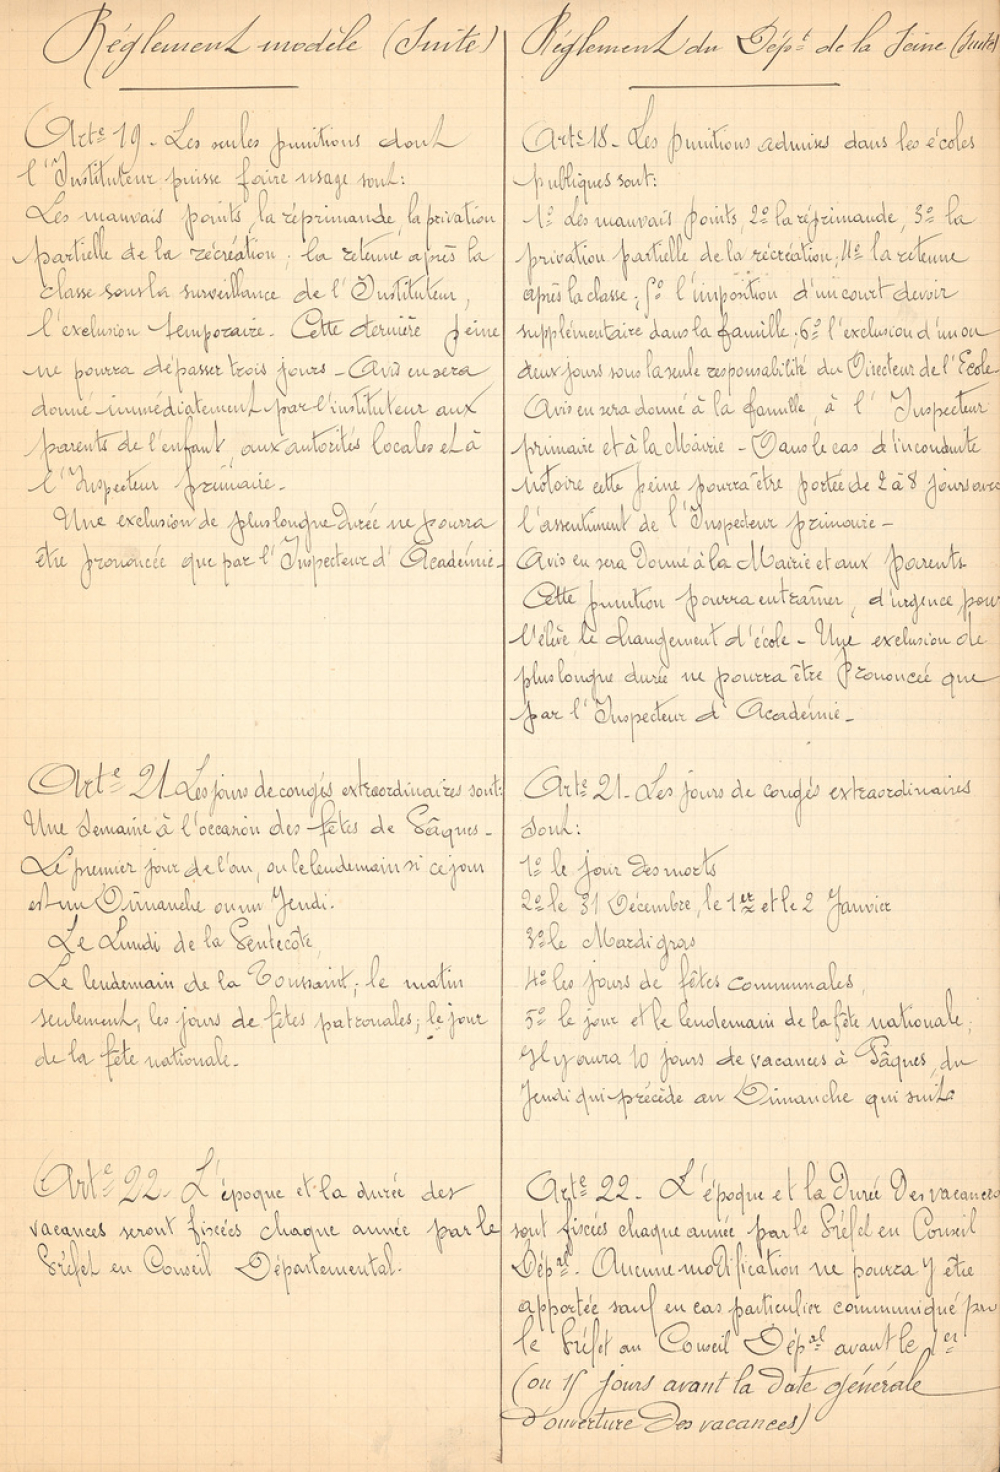 Réglement modèle (Suite)
Arte 19. Les seules punitions dont
l'Instituteur puisse faire usage sont:
Les mauvais points, la réprimande, la privation
partielle de la récréation; la retenue après la
classe sous la surveillance de l'Instituteur,
l'exclusion temporaire. Cette dernière peine
ne pourra dépasser trois jours - Avis en sera
donné immédiatement par l'instituteur aux
parents de l'enfant, aux autorités locales et à
l'Inspecteur primaire.
Une exclusion de plus longue durée ne pourra
être prononcée que par l'Inspecteur d'Académie.
Arte 21. Les jours de congés extraordinaires sont:
Une Semaine à l'occasion des fêtes de Pâques -
Le premier jour de l'an, ou le lendemain si ce jour
est un Dimanche ou un Jeudi.
Le Lundi de la Pentecôte,
Le lendemain de la Toussaint; le matin
seulement, les jours de fêtes patronales; le jour
de la fête nationale.
Arte 22. L'époque et la durée des
vacances seront fixées chaque année par le
Préfet en Conseil Départemental.
Réglement du Dépt de la Seine (Suite)
Arte 18. Les punitions admises dans les écoles
publiques sont:
1º Les mauvais points, 2º la réprimande, 3º la
privation partielle de la récréation; 4º la retenue
après la classe; 5º l'imposition d'un court devoir
supplémentaire dans la famille; 6º l'exclusion d'un ou
deux jours sous la seule responsabilité du Directeur de l'Ecole.
Avis en sera donné à la famille, à l'Inspecteur
primaire et à la Mairie - Dans le cas d'inconduite
notoire cette peine pourra être portée de 2 à 8 jours avec
l'assentiment de l'Inspecteur primaire -
Avis en sera Donné à la Mairie et aux Parents
Cette punition pourra entraîner, d'urgence, pour
l'élève le changement d'école - Une exclusion de
plus longue durée ne pourra être Prononcée que
par l'Inspecteur d'Académie -
Arte 21. Les jours de congés extraordinaires
sont:
1º le jour Des morts
2º le 31 Décembre, le 1er et le 2 Janvier
3º le Mardi gras
4º les jours de fêtes communales,
5º le jour et le lendemain de la fête nationale;
Il y aura 10 jours de vacances à Pâques, du
Jeudi qui précède au Dimanche qui suit
Arte 22. L'époque et la Durée Des vacances
sont fixées chaque année par le Préfet en Conseil
Dépal. Aucune modification ne pourra y être
apportée sauf en cas particulier communiqué par
le Préfet au Conseil Dépal avant le 1er
(ou 15 jours avant la Date générale
d'ouverture Des vacances)